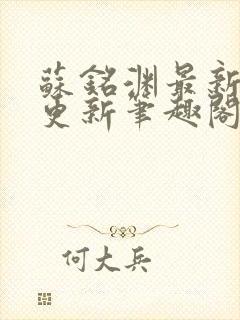 蘇銘淵最新
更新筆趣閣
何大兵